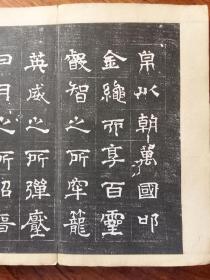 帛以朝萬國叩
金繩而享百靈
叡智之所牢籠
英威之所彈壓
日月之所照臨